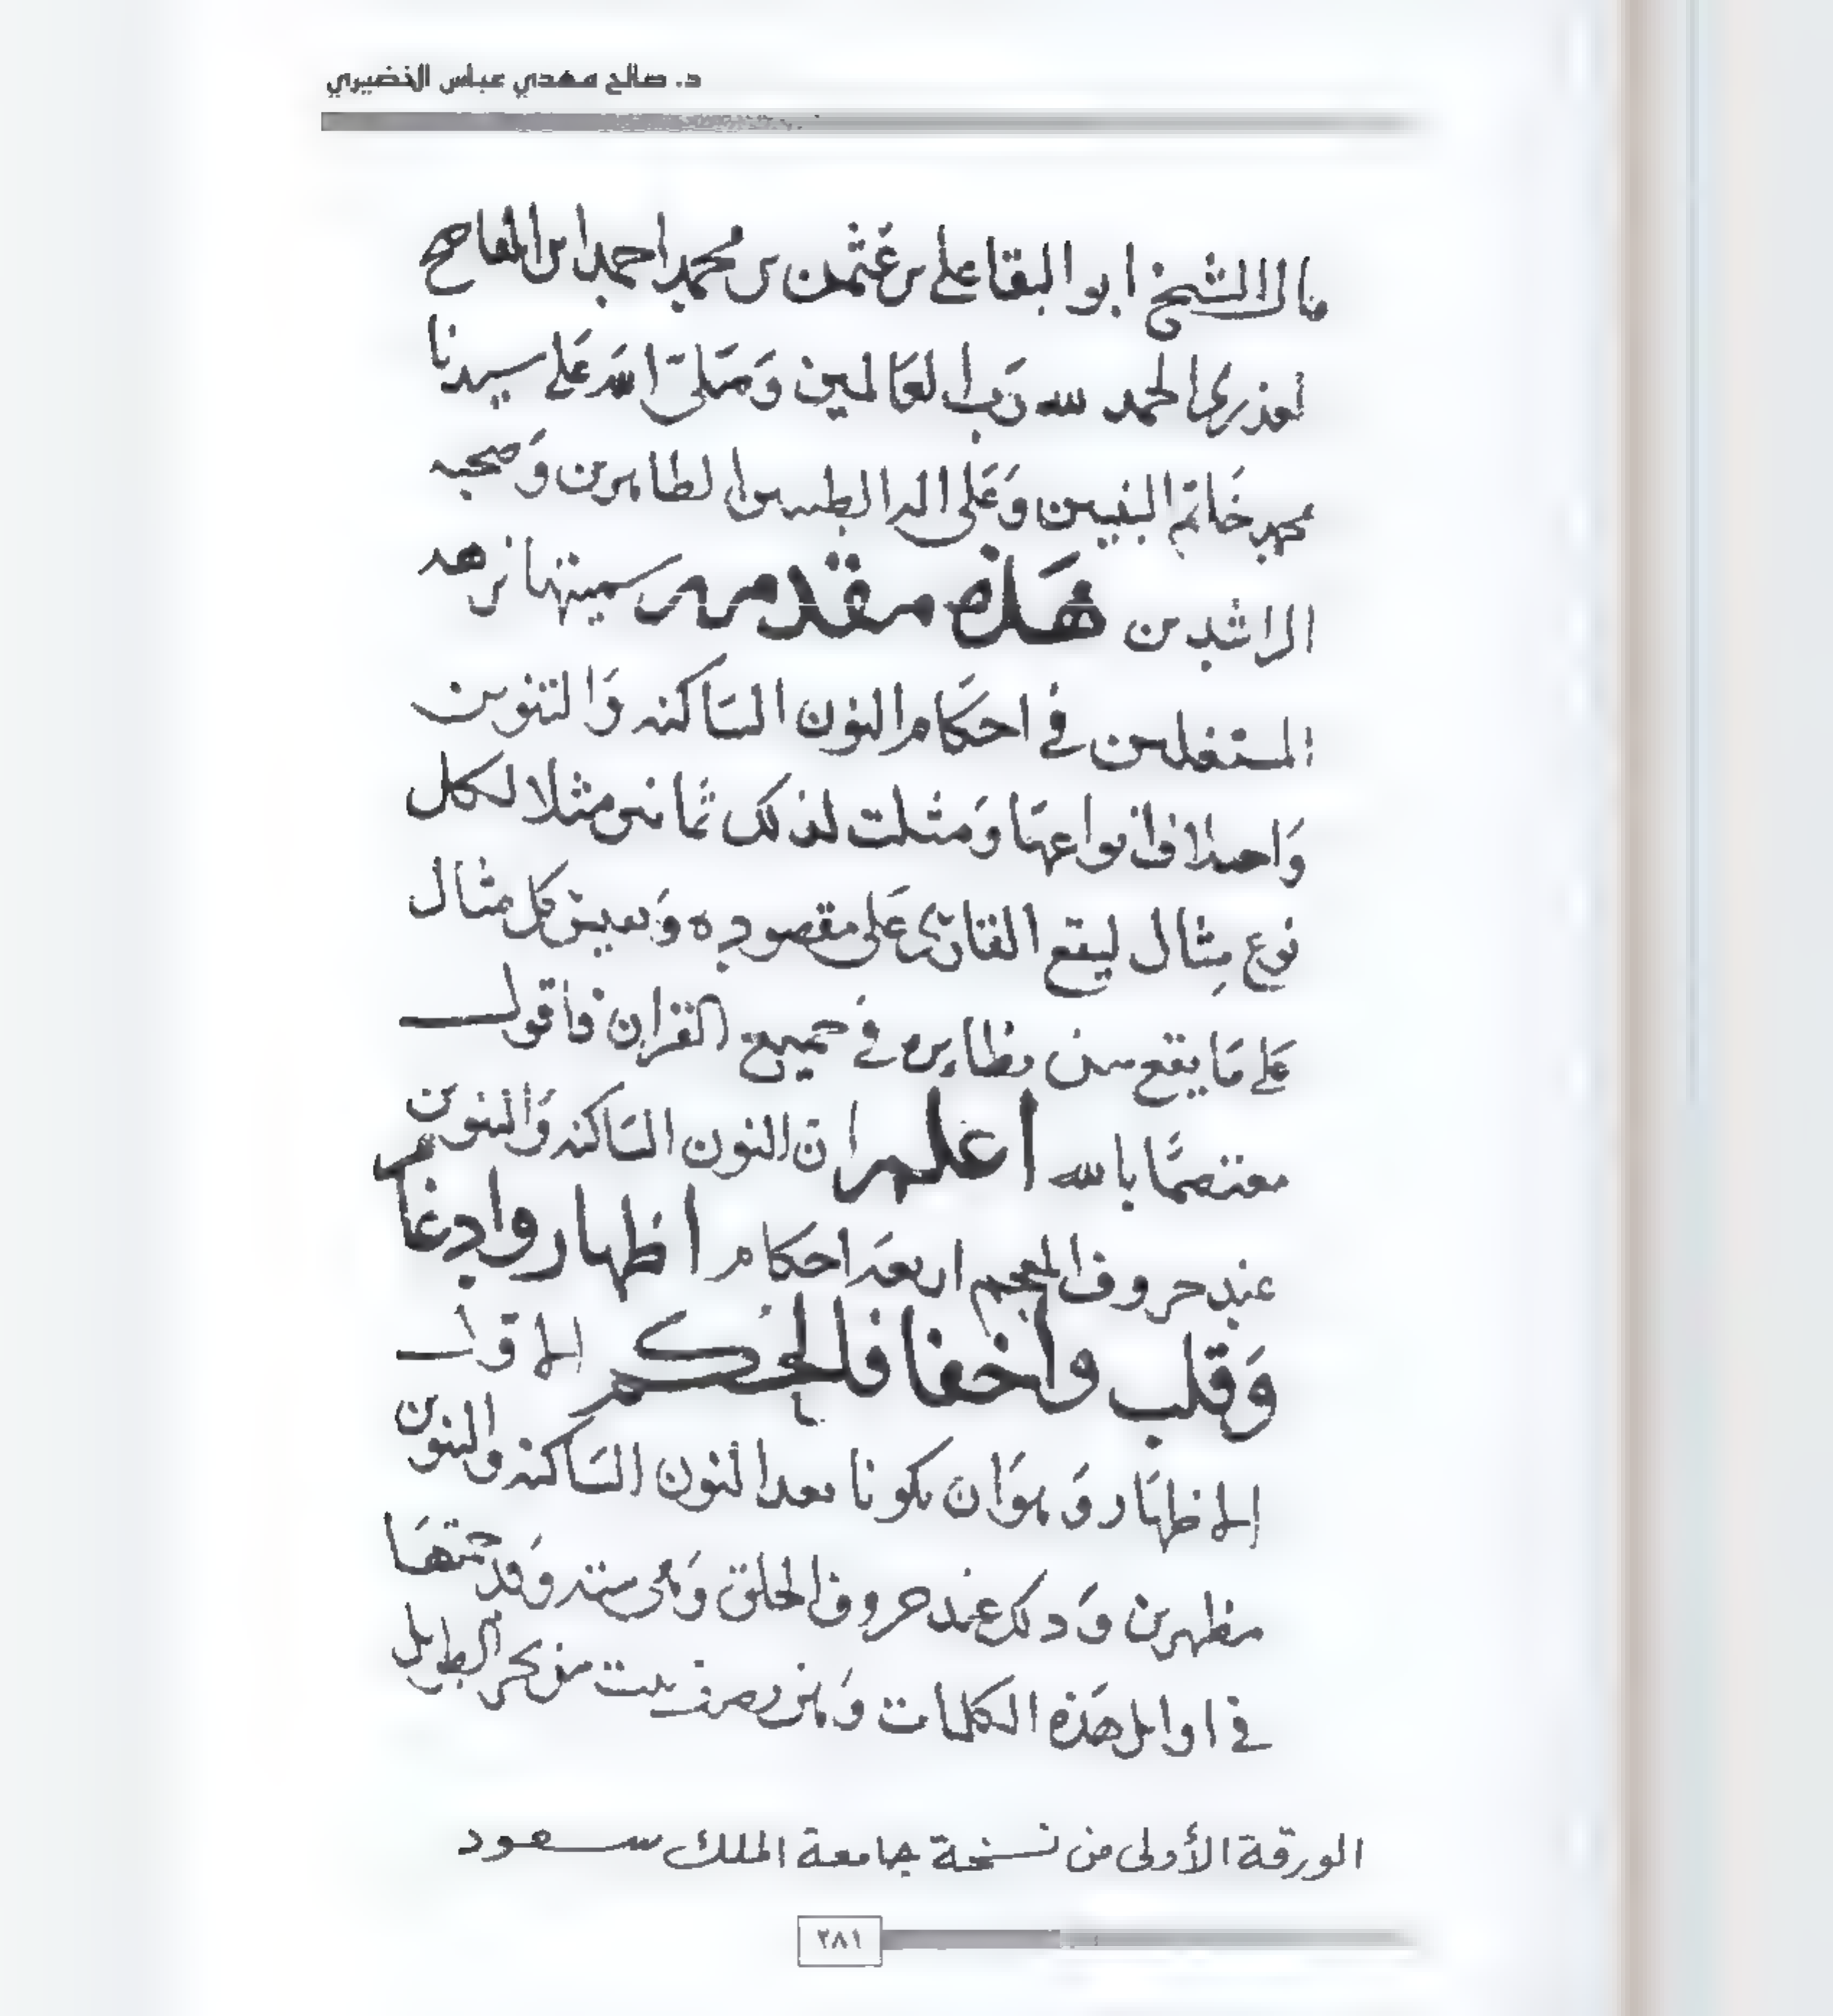 د. صالح مهدي عباس الخضيري
قال الشيخ ابو البقا علي بن عثمن بن محمد احمد ابن القاصح
العذري الحمد لله رَب العَالمين وَصَلىّ الله عَلى سيدنا
محمد خَاتم النبيين وَعَلى اله الطيبين الطاهرين وَصحبه
الراشدين هَذه مقدمه سميتها نزهه
المشتغلين في احكَام النون السَاكنه وَالتنوين
وَاحدا فانواعهَا وَمثلت لذلك ثمَانين مثلا لكل
نوع مِثال ليقع القارئ عَلى مقصوده وَيقيس كل مثال
عَلى مَا يقع من نظايره في جميع القران فأقول
معتصمًا بالله اعلم ان النون السَاكنه وَالتنوين
عند حروف المعجم اربعَه احكام اظهار وادغام
وَقلب واخفا فالحُكم الاول
الاظهَار وَهوَ ان يكونا بعد النون السَاكنه والتنوين
مظهرين وَذلك عند حروف الحلق وَهى سته وَقد جمعتهَا
في اوايل هَذه الكلمات وَهى نصف بيت من بحر الطويل
الورقة الأولى من نسخة جامعة الملك سعود
٢٨١